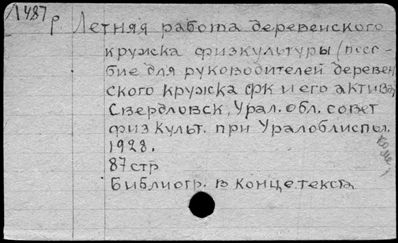 Л487
р. Летняя работа деревенского
кружка физкультуры (посо-
бие для руководителей деревен
ского кружка ФК и его актива,
Свердловск, Урал. обл. совет
физкульт. при Уралоблиспол.
1928.
87 стр
Библиогр. в конце текста